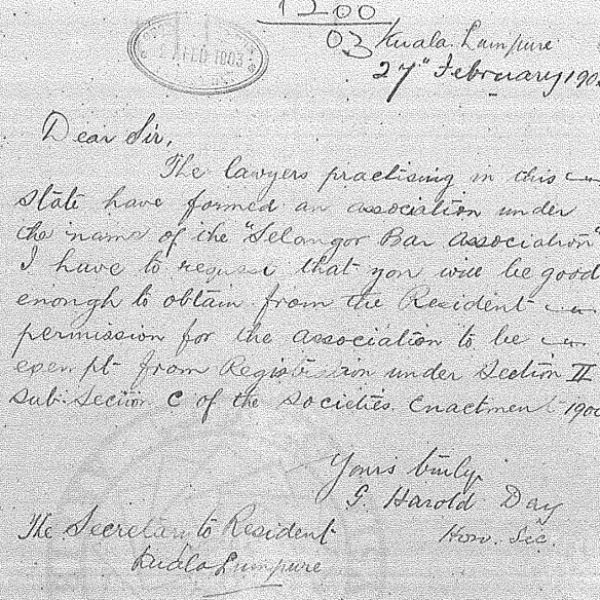 1200
03
FEB 1903
Kuala Lumpure
27" February 190
Dear Sir,
The lawyers practising in this
state have formed an association under
the name of the "Selangor Bar Association"
I have to request that you will be good
enough to obtain from the Resident
permission for the association to be
exempt from Registration under Section II
sub-section C of the Societies Enactment 190
Yours truly
G. Harold Day
Hon. Sec.
The Secretary to Resident
Kuala Lumpure